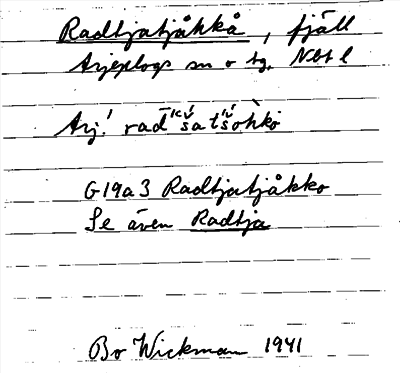 Radtjatjåkkå, fjäll
Arjeplogs sn o tg. Nbt l
Arj. rad šatšohko
G19a3 Radtjatjåkko
Se även Radtja
Bo Wickman 1941